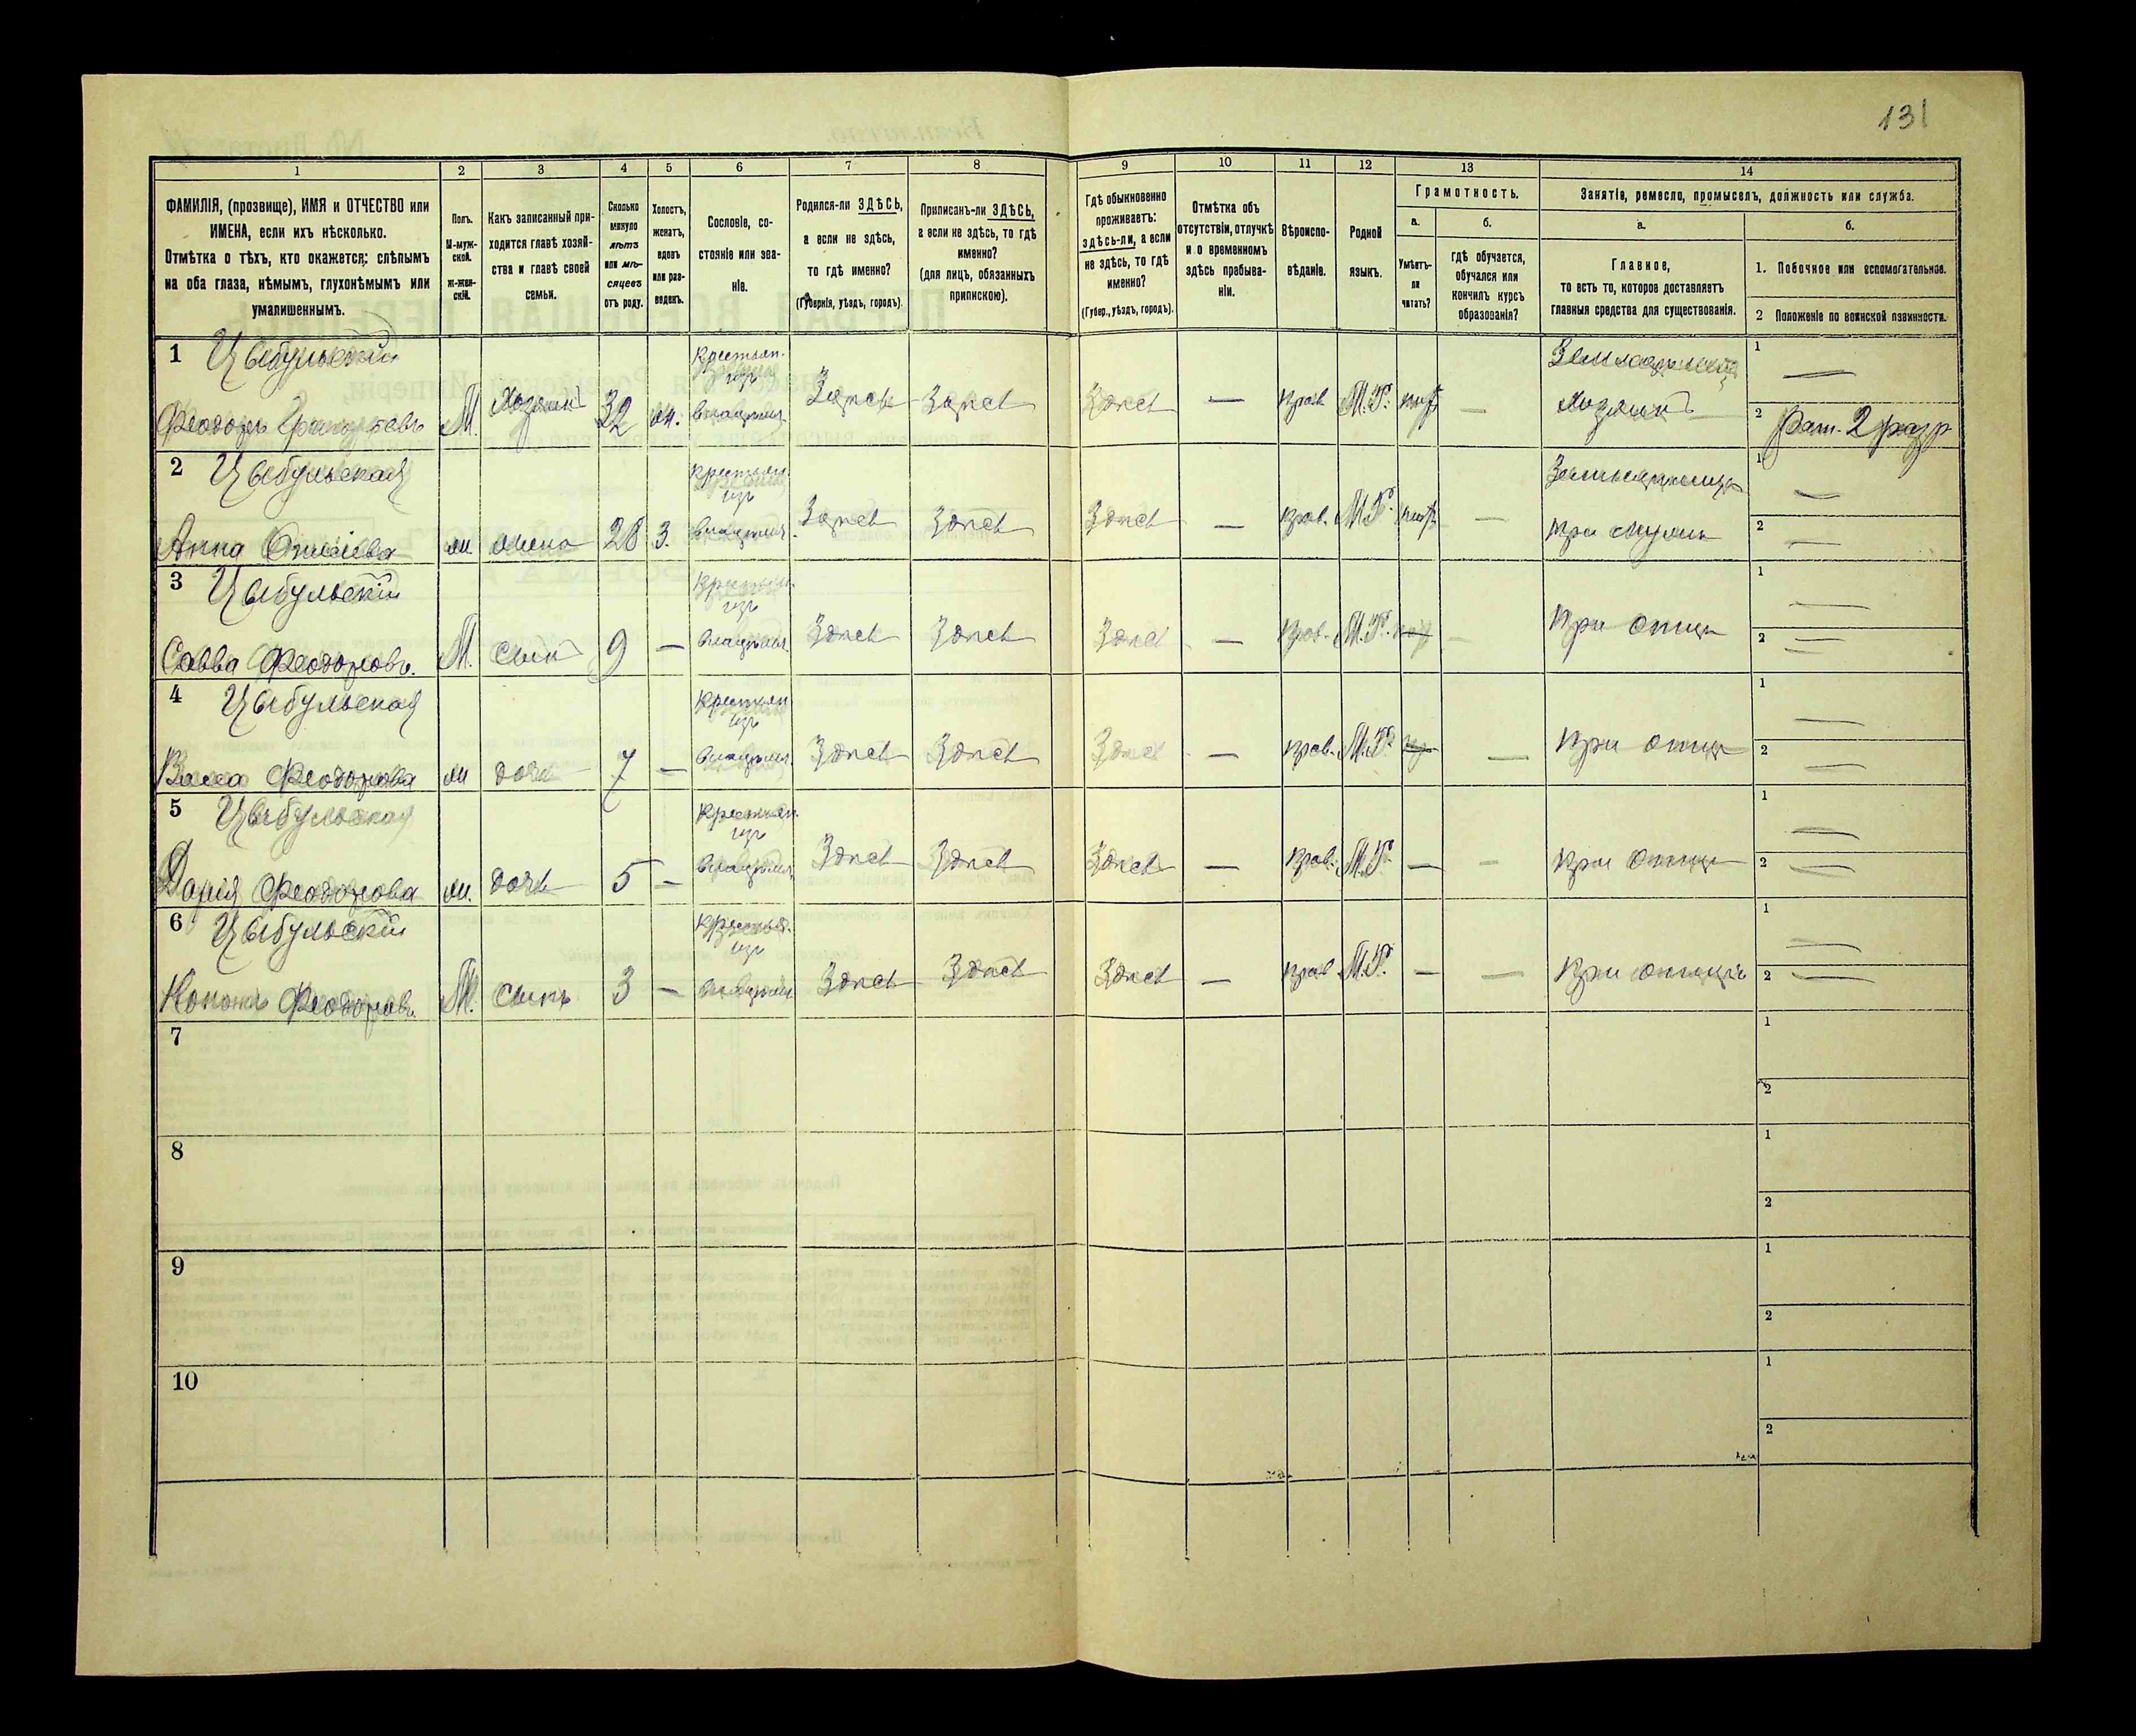 131
1
2
3
4
5
6
7
8
9
10
11
12
13
14
ФАМИЛІЯ, (прозвище), ИМЯ и ОТЧЕСТВО или
ИМЕНА, если ихъ нѣсколько.
Отмѣтка о тѣхъ, кто окажется: слѣпымъ
на оба глаза, нѣмымъ, глухонѣмымъ или
умалишеннымъ.
Полъ.
М-муж-
ской.
Ж-жен-
скій.
Какъ записанный при-
ходится главѣ хозяй-
ства и главѣ своей
семьи.
Сколько
минуло
лѣтъ
или мѣ-
сяцевъ
отъ роду.
Холостъ,
женатъ,
вдовъ
или раз-
веденъ.
Сословіе, со-
стояніе или зва-
ніе.
Родился-ли ЗДѢСЬ,
а если не здѣсь,
то гдѣ именно?
(Губернія, уѣздъ, городъ).
Приписанъ-ли ЗДѢСЬ,
а если не здѣсь, то гдѣ
именно?
(для лицъ, обязанныхъ
припискою).
Гдѣ обыкновенно
проживаетъ:
здѣсь-ли, а если
не здѣсь, то гдѣ
именно?
(Губер., уѣздъ, городъ).
Отмѣтка объ
отсутствіи, отлучкѣ
и о временномъ
здѣсь пребыва-
ніи.
Вѣроиспо-
вѣданіе.
Родной
языкъ.
Грамотность.
а.
Умѣетъ-
ли
читать?
б.
гдѣ обучается,
обучался или
кончилъ курсъ
образованія?
Занятіе, ремесло, промыселъ, должность или служба.
а.
Главное,
то есть то, которое доставляетъ
главныя средства для существованія.
б.
1. Побочное или вспомогательное.
2 Положеніе по воинской повинности.
1 Цыбульскій
Феодоръ М. Хозяинъ 32 Крестьян. изъ Здѣсь Здѣсь Здѣсь — Прав М.Р. — Хозяинъ
1 —
2 Рат. 2 разр
2 Цыбульская
Анна ж. жена 28 З. Крестьян. изъ Здѣсь Здѣсь Здѣсь — Прав. М.Р. — При мужѣ
1 —
2 —
3 Цыбульскій
Савва Феодоровъ. М. Сынъ 9 — Крестьян. изъ Здѣсь Здѣсь Здѣсь — Прав. М.Р. — При отцѣ
1 —
2 —
4 Цыбульская
Васса Феодорова ж дочь 7 — Крестьян изъ Здѣсь Здѣсь Здѣсь — Прав. М.Р. — При отцѣ
1 —
2 —
5 Цыбульская
Дарія Феодорова ж. дочь 5 — Крестьян. изъ Здѣсь Здѣсь Здѣсь — Прав. М.Р. — — При отцѣ
1 —
2 —
6 Цыбульскій
Кононъ Феодоровъ. М. Сынъ 3 — изъ Здѣсь Здѣсь Здѣсь — Прав М.Р. — — При отцѣ
1 —
2 —
7
1
2
8
1
2
9
1
2
10
1
2